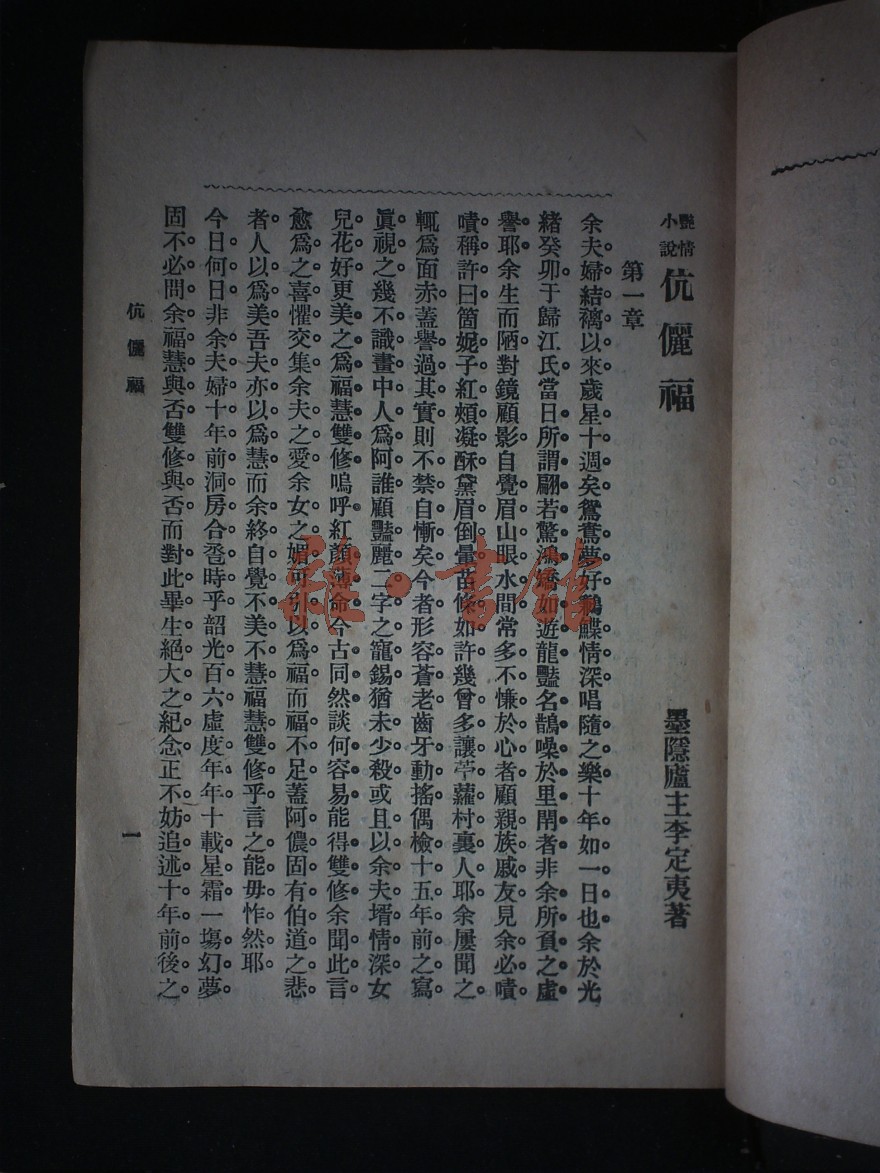 艷情小說 伉儷福
墨隱廬主李定夷著
第一章
余夫婦結褵以來歲星十週矣鴛鴦夢好鶼鰈情深唱隨之樂十年如一日也余於光
緒癸卯于歸江氏當日所謂翩若驚鴻矯如遊龍豔名鵲噪於里閈者非余所負之虛
譽耶余生而陋對鏡顧影自覺眉山眼水間常多不慊於心者顧親族戚友見余必嘖
嘖稱許曰箇妮子紅頰凝酥黛眉倒暈苗條如許幾曾多讓苧蘿村裏人耶余屢聞之
輒爲面赤蓋譽過其實則不禁自慚矣今者形容蒼老齒牙動搖偶檢十五年前之寫
眞視之幾不識畫中人爲阿誰顧豔麗二字之寵錫猶未少殺或且以余夫壻情深女
兒花好更美之爲福慧雙修嗚呼紅顏薄命今古同然談何容易能得雙修余聞此言
愈爲之喜懼交集余夫之愛余女之媚可引以爲福而福不足蓋阿儂固有伯道之悲
者人以爲美吾夫亦以爲慧而余終自覺不美不慧福慧雙修乎言之能毋怍然耶
今日何日非余夫婦十年前洞房合巹時乎韶光百六虛度年年十載星霜一塲幻夢
固不必問余福慧與否雙修與否而對此畢生絕大之紀念正不妨追述十年前後之
伉儷福
一
雜·書館